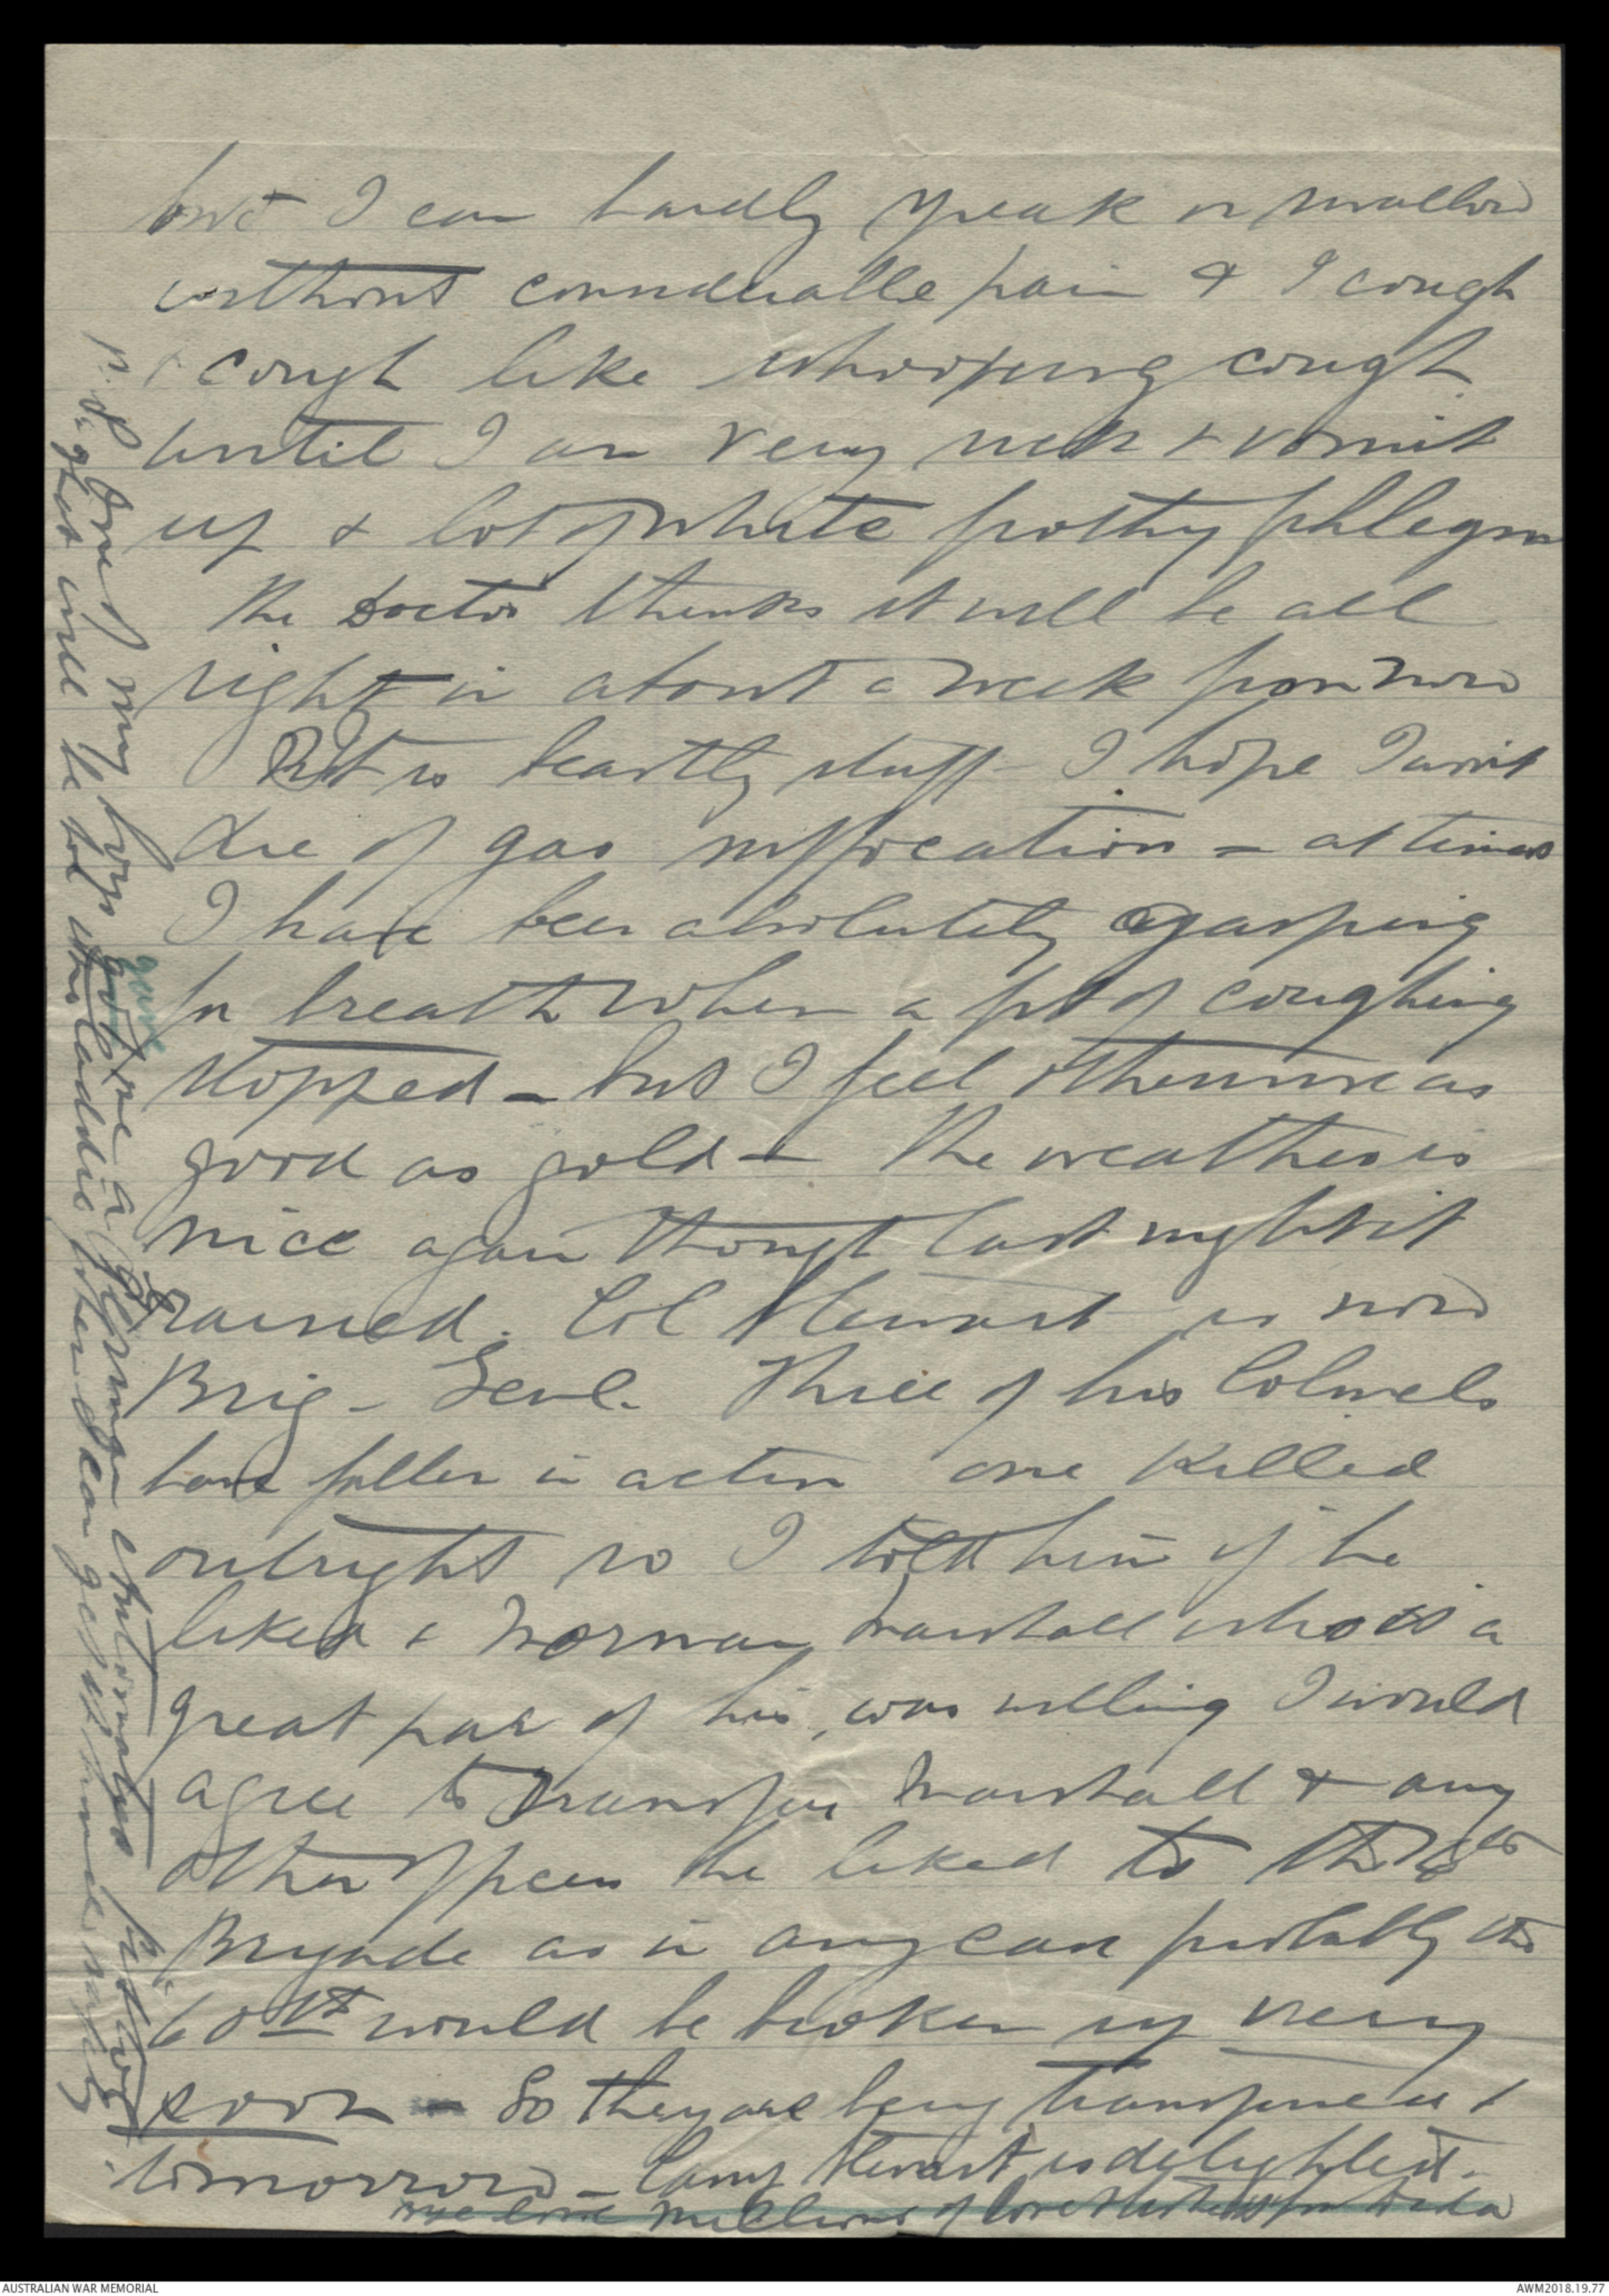 but I can hardly speak or swallow
without considerable pain & I cough
& cough like whooping cough
until I am very weak & vomit
up a lot of white frothy phlegm
The Doctor thinks it will be all
right in about a week from now
But it is beastly stuff I hope I won't
die of gas suffocation - at times
I have been absolutely gasping
for breath when a fit of coughing
stopped - but I feel otherwise as
good as gold - The weather is
nice again though last night it
rained. Col Stewart is now
Brig - Genl. Three of his Colonels
have fallen in action one killed
outright so I told him if he
liked & Norman Marshall who is a
great pal of his, was willing I would
agree to transfer Marshall & any
other officers he liked to the
Brigade as in any case probably the
60th would be broken up very
soon - So they are being transferred
tomorrow - Camp Stewart is delighted.
millions of love & kisses from Dida
P.S. One of my boys gave me a German automatic pistol
that will be for the laddie when I can get it home safely
AUSTRALIAN WAR MEMORIAL
AWM2018.19.77